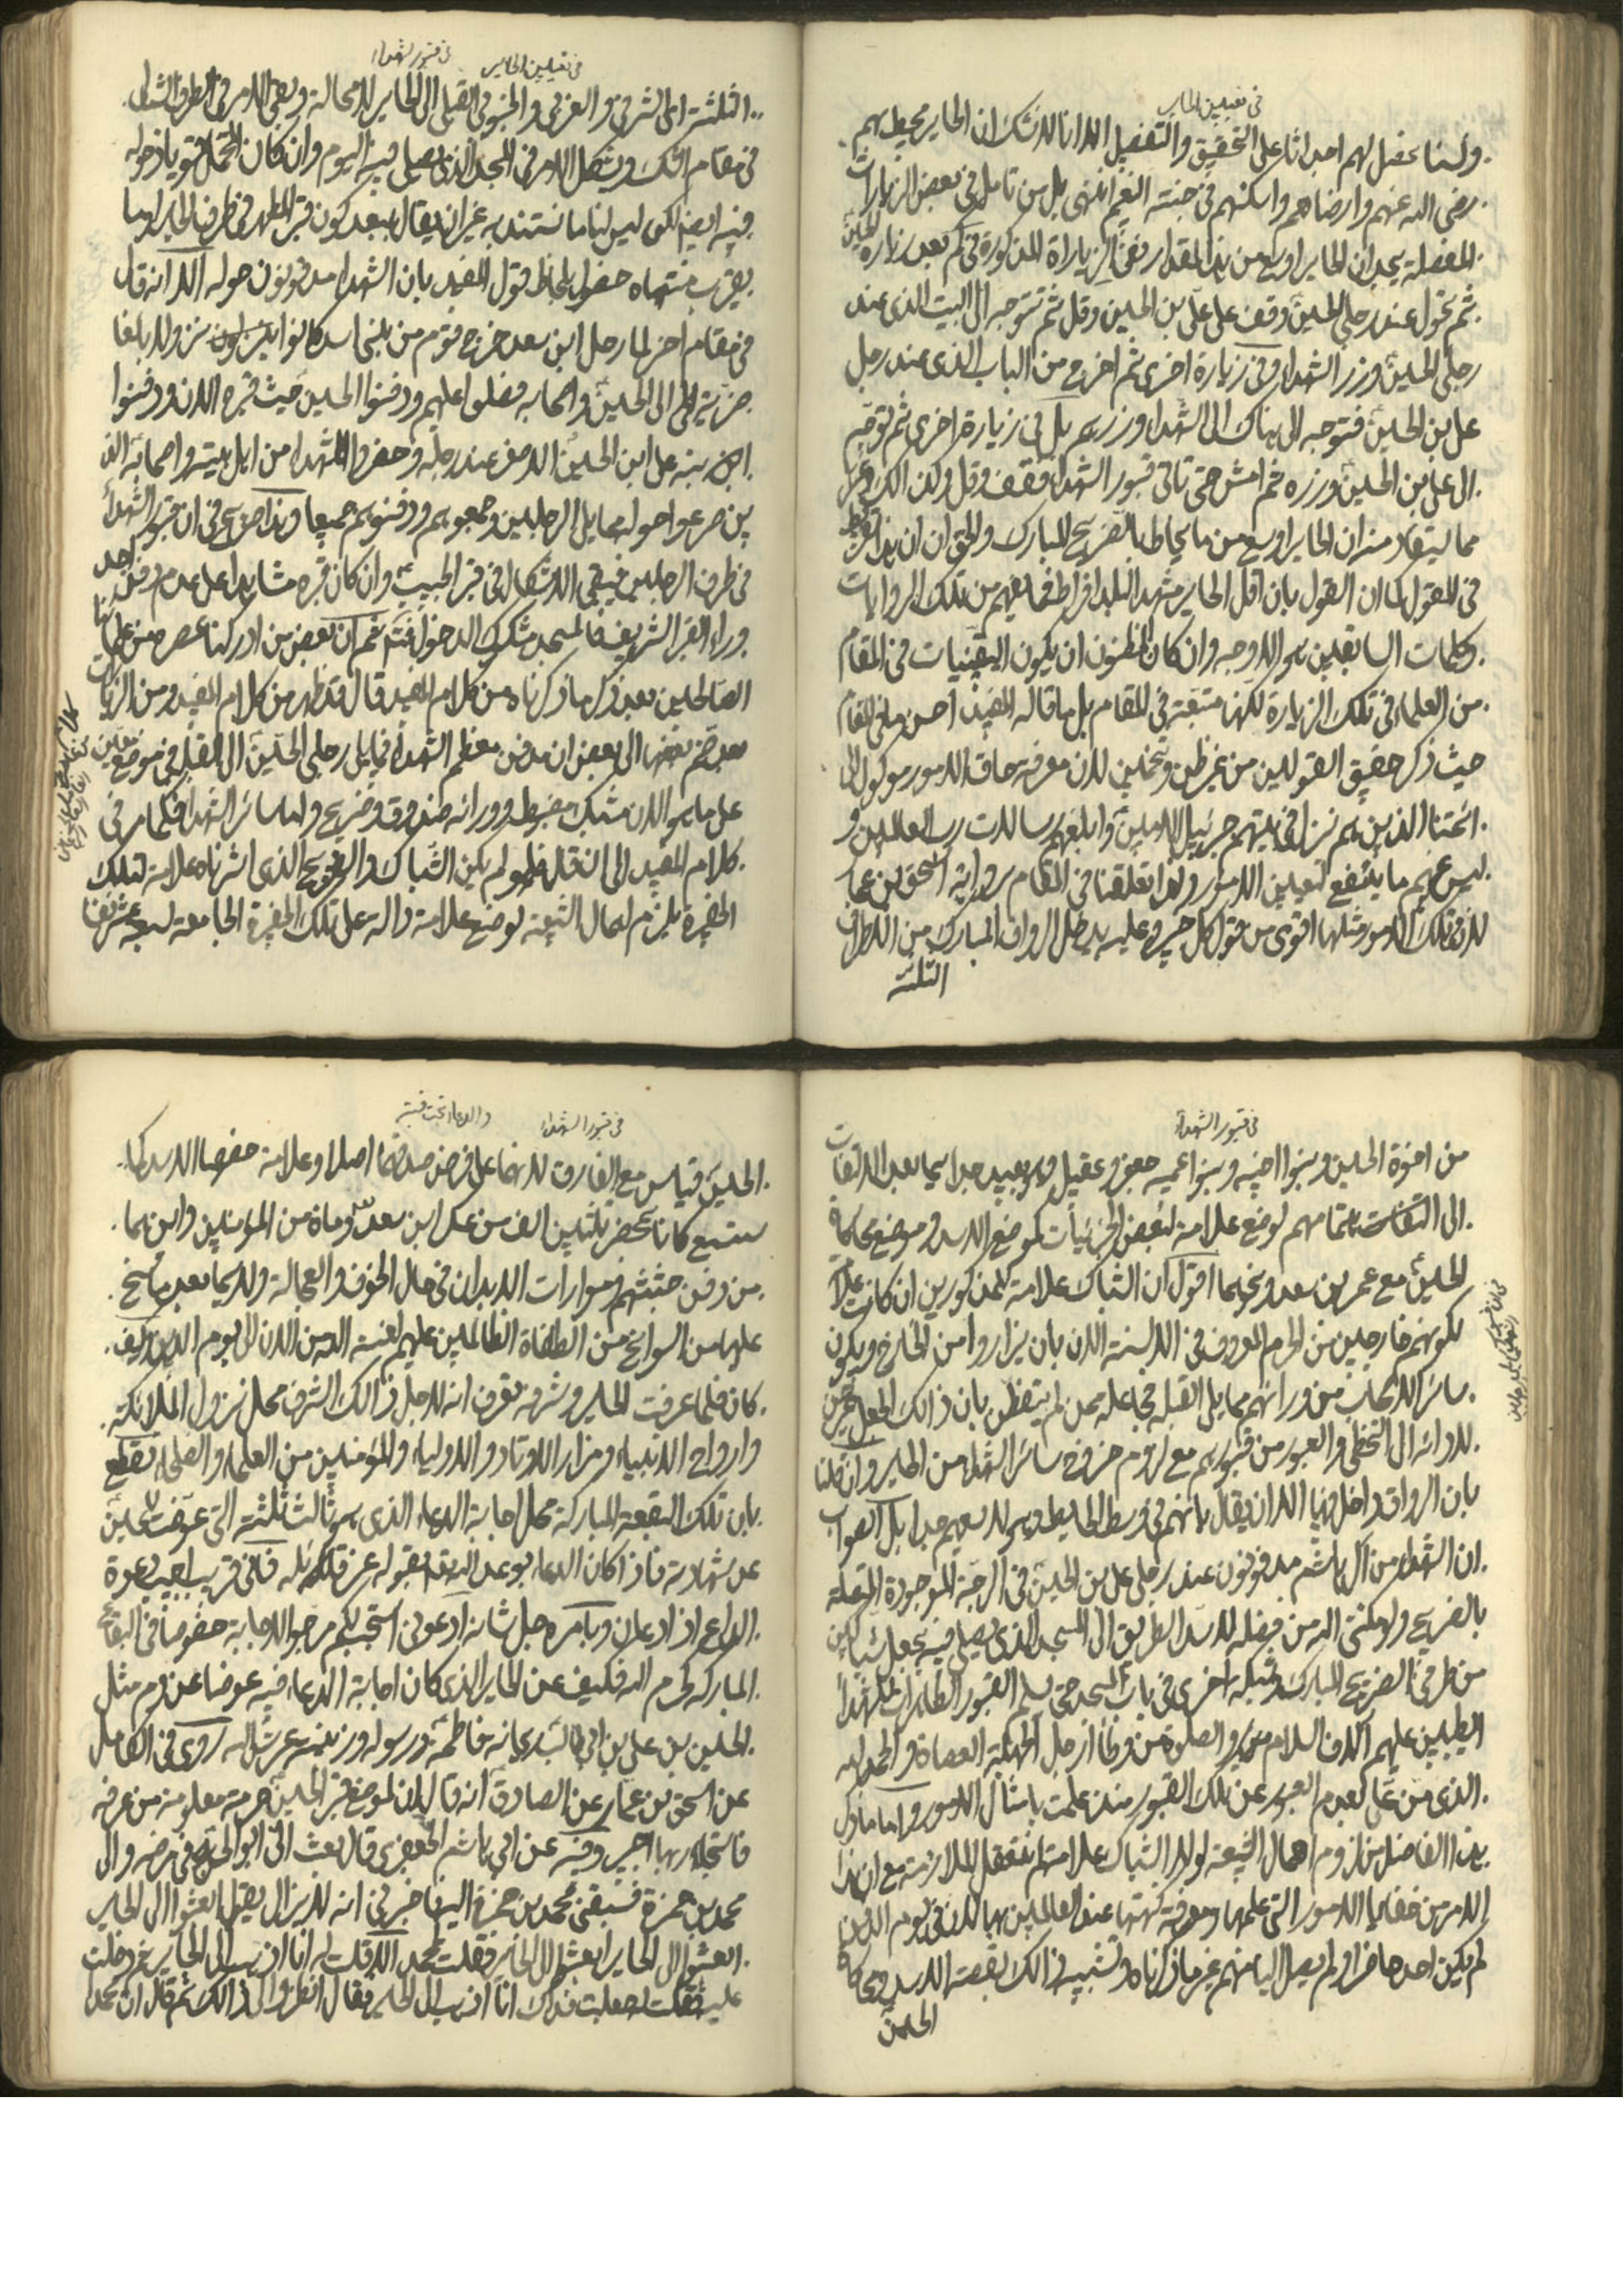 في تعيين الحاير
ولسنا نحصل لهم اجداثا على التحقيق والتفصيل الا انا لا نشك ان الحاير محيط بهم
رضي الله عنهم وارضاهم واسكنهم في جنته النعيم انتهى بل من تامل في بعض الزيارات
المفصلة يجد ان الحاير اوسع من هذا المقدار ففي الزياراة المذكورة في كم بعد زيارة الحسين
ثم تحول عند رجلي الحسين وقف على علي بن الحسين وقل ثم تتوجه الى البيت الذي عند
رجلي الحسين وزر الشهداء وفي زيارة اخرى ثم اخرج من الباب الذي عند رجل
علي بن الحسين فتوجه الى هناك الى الشهداء وزرهم بل في زيارة اخرى ثم توجه
الى علي بن الحسين وزره ثم امش حتى تاتي قبور الشهداء فقف وقل ولذالك وغير
مما يستفاد منه ان الحاير اوسع من ما يحاط بالضريح المبارك والحق ان ان هذا تفريط
في القول كما ان القول بان اقل الحاير مشهد البلد افراط فما يفهم من تلك الروايات
وكلمات السابقين هو الاوجه وان كان المظنون ان يكون اليقينيات في المقام
من العلماء في تلك الزيارة لكنها متبعة في المقام بل ما قاله المفيد احسن ما في المقام
حيث ذكر حقيق القولين من غير ظن وتخمين لان معرفة حاق الامور موكول الى
ائمتنا الذين هم نزل في بيتهم جبرئيل الامين وابلغهم رسالات رب العالمين و
ليس عنهم ما ينفع لتعيين الامور ولذا تعلقنا في المقام برواية اسحق بن عمار
لان في تلك الامور مثلها اقوى من قول كل خبير وعليه يدخل الرواق المبارك من الاطراف
الثلثة
في تعيين الحاير في قبور الشهداء
الثلثة اي الشرقي والغربي والجنوبي القبلي الى الحاير لا محالة ويبقى الامر في الطرف الشمالي
في مقام الشك ويشكل الامر في المسجد الذي يصلي فيه اليوم وان كان المحتمل قويا دخوله
فيه ايضا لكن ليس لنا ما نستند به غير ان يقال يبعد كون قبر المطهر في طرف الحاير او ما
يقرب منتهاه خصوصا بلحاظ قول المفيد بان الشهداء مدفونون حوله الا انه قال
في مقام اخر لما رحل ابن سعد خرج قوم من بني اسد كانوا نزولا بالغا
ضرية الى الحسين واصحابه فصلوا عليهم ودفنوا الحسين حيث قبره الان ودفنوا
ابنه علي ابن الحسين الاصغر عند رجله وحفروا للشهداء من اهل بيته واصحابه الذ
ين صرعوا حوله مما يلي الرجلين وجمعوهم ودفنوهم جميعا وهذا صريح في ان قبور الشهداء
في طرف الرجلين فيبقى الاشكال في قبر الحبيب وان كان قبره شاهدا على عدم دفن احد
وراء القبر الشريف فالمسجد مشكوك الدخول فتم ثم ان بعض من ادركنا عصره من علمائنا
الصالحين بعد ذكر ما ذكرناه من كلام المفيد قال قد ظهر من كلام المفيد ومن الزيارات
بعد ضم بعضها الى بعض ان مدفن معظم الشهداء مما يلي رجلي الحسين الى القبلة في موضع معين
على ما هو الان مشبك مضبوط وورائه صندوق وضريح ولها سائر الشهداء فكما مر في
كلام المفيد الى ان قال فلو لم يكن الشباك والضريح الذي اشرناه علامة لتلك
الحفيرة يلزم اهمال الشيعة لوضع علامة دالة على تلك الحفيرة الجامعة لسبعة عشر نفسا
في قبور الشهداء
من اخوة الحسين وبنوا اخيه وبنوا عميه جعفر وعقيل وهو بعيد جدا سيما بعد الالتفات
الى التفات اهتمامهم لوضع علامة لبعض الجزئيات كموضع الاسد وموضع محاكمة
الحسين مع عمر بن سعد ونحوهما اقول ان الشباك علامة للمذكورين ان كانت علامة
لكونهم خارجين من الحرم المعروف في الالسنة الان بان يزاروا من الخارج ويكون
سائر الاصحاب من ورائهم مما يلي القبلة فجاعله ممن لم يتفطن بان ذالك الجعل
لدورانه الى التخطي والعبور من قبورهم مع لزوم خروج سائر الشهداء من الحاير وان قلنا
بان الرواق داخل فيها الا ان يقال بانهم في وسط الحايط وهو لا يسعهم جدا بل الصواب
ان الشهداء من آل هاشم مدفونون عند رجلي علي بن الحسين في الرجة الموجودة المتصلة
بالضريح ولو مكنني الله من فضله لاسد الطريق الى المسجد الذي يصلي فيه بجعل شباكين
من طرفي الضريح المبارك وشبكة اخرى في باب المسجد حتى يسلم القبور الطاهرات للشهداء
الطيبين عليهم آلاف السلام من ربي والصلوة من وطأ ارجل الجهلة العصاة والحمد لله
الذي من علي بعدم العبور عن تلك القبور منذ علمت بامثال الامور واما ما ذكر
هذا الفاضل من لزوم اهمال الشيعة لولا الشباك علامة لهم فنعقل الملازمة مع ان هذا
الامر من خفايا الامور التي علمها ومعرفة كنهها عند العالمين بها لان في يوم الدفن
لم يكن احد حاضرا ولم يصل الينا منهم غير ما ذكرناه وتشبيه ذالك بقصة الاسد ومحاكاة
الحسين
في قبور الشهداء والدعاء تحت قبته
الحسين قياس مع الفارق لانهما على فرض صدقهما اصلا وعلامة خصوصا الاسد كما
كانا بمحضر ثلثين الف من عسكر ابن سعد وماة من المؤمنين واين هما
من دفن جثثهم ومواراة الابدان في حال الخوف والعجالة ولا سيما بعد ما سنح
عليها من السوانح من الطغاة الظالمين عليهم لعنة الله من الان الى يوم الدين وكيف
كان فلما عرفت الحاير وشرفه تعرف انه لاجل ذالك الشرف محل نزول الملائكة
وارواح الانبياء ومزار الاوتاد والاولياء والمؤمنين من العلماء والصلحاء يقطع
بان تلك البقعة المباركة محل اجابة الدعاء الذي هو ثالث ثلثة التي عوضت للحسين
عن شهادته فاذا كان الدعاء بوعد الله بقوله عز قائله فاني قريب اجيب دعوة
الداع اذا دعان وبامره جل شانه ادعوني استجب لكم مرجو الاجابة خصوصا في البقاع
المباركة كحرم الله فكيف عن الحاير الذي كان اجابة الدعاء فيه عوضا عن دم مثل
الحسين بن علي بن ابي طالب ريحانة فاطمة ورسوله وزينة عرش الله روى في الكامل
عن اسحق بن عمار عن الصادق انه قال ان لموضع قبر الحسين حرمة معلومة من عرفها
فاستجار بها اجير وفيه عن ابي هاشم الجعفري قال بعث الي ابو الحسن في مرضه والى
محمد بن حمزة فسبقني محمد بن حمزة اليه فاخبرني انه لا يزال يقول ابعثوا الى الحاير
ابعثوا الى الحاير ابعثوا الى الحاير فقلت لمحمد الا قلت له انا اذهب الى الحاير ثم دخلت
عليه فقلت له جعلت فداك انا اذهب الى الحاير فقال انظروا في ذالك ثم قال ان محمدا